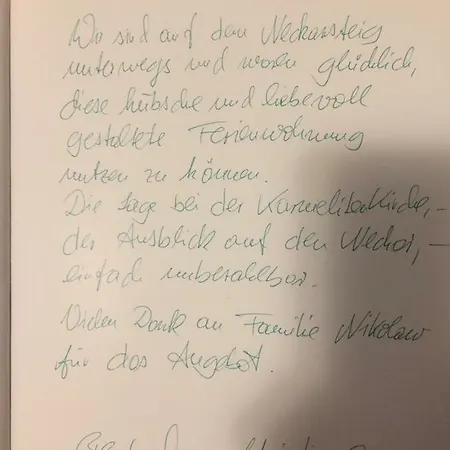 Wir sind auf dem Neckarsteig
unterwegs und waren glücklich,
diese hübsche und liebevoll
gestaltete Ferienwohnung
nutzen zu können.
Die Lage bei der Karmeliterkirche, –
der Ausblick auf den Neckar, –
einfach unbezahlbar.
Vielen Dank an Familie Nikolaus
für das Angebot.